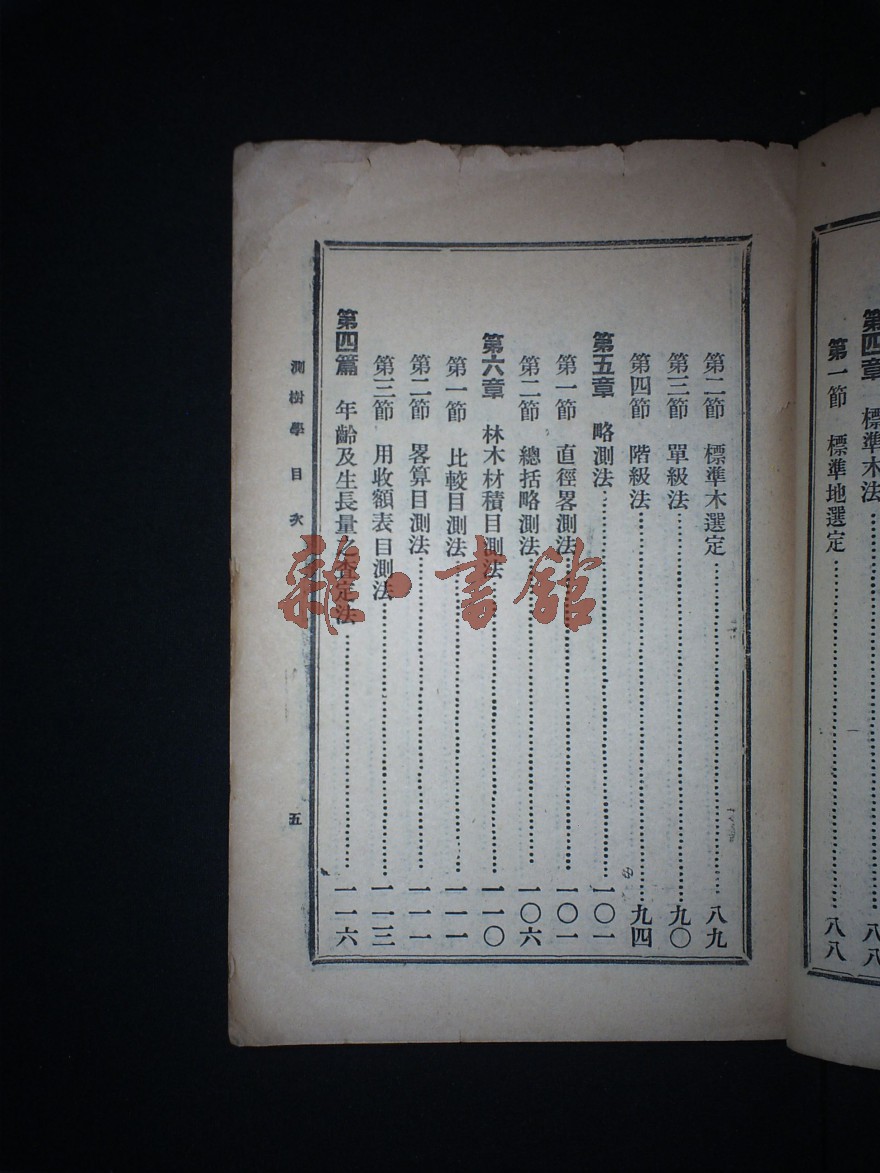 第四章　標準木法……八八
第一節　標準地選定……八八
第二節　標準木選定……八九
第三節　單級法……九〇
第四節　階級法……九四
第五章　略測法……一〇一
第一節　直徑畧測法……一〇一
第二節　總括略測法……一〇六
第六章　林木材積目測法……一一〇
第一節　比較目測法……一一一
第二節　畧算目測法……一一一
第三節　用收額表目測法……一一三
第四篇　年齡及生長量之查定法……一一六
測樹學目次　五
雜·書館